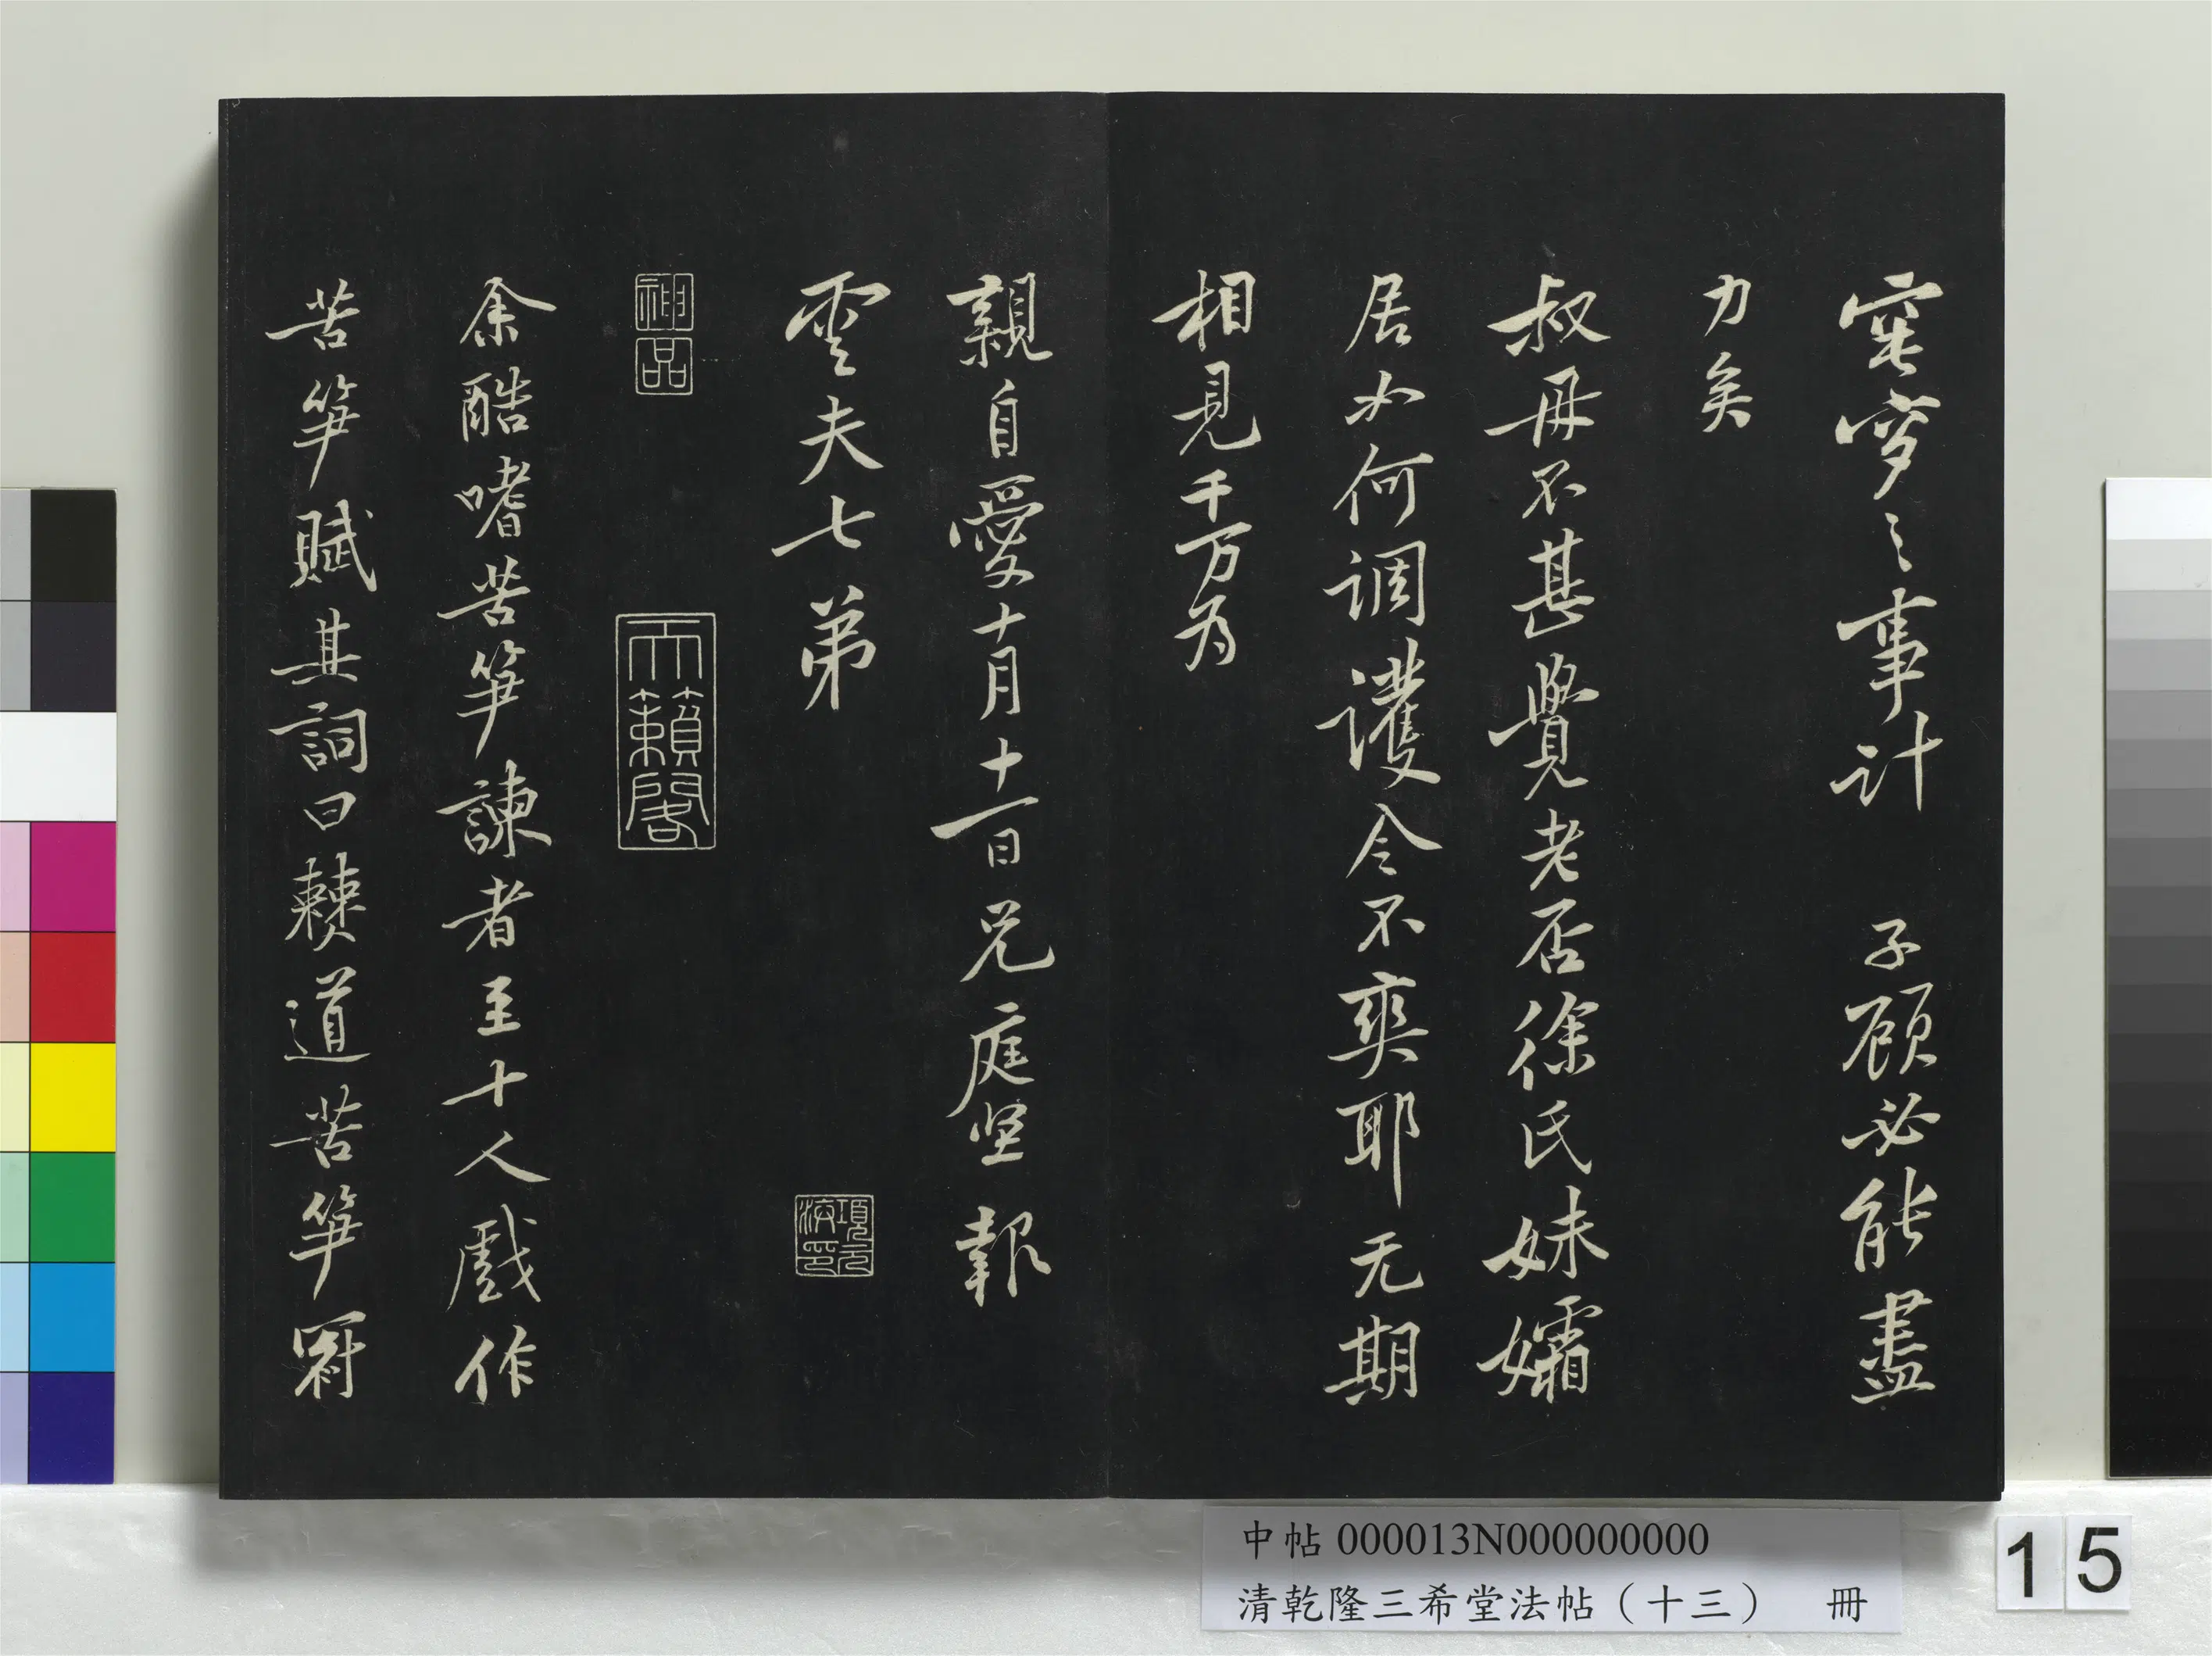 窀穸之事計 子顧必能盡
力矣
叔母不甚覺老否徐氏妹孀
居如何調護令不爽耶无期
相見千万为
親自愛十月十一日兄庭坚報
雲夫七弟
項元汴印
神品
天籟閣
余酷嗜苦笋諫者至十人戲作
苦笋賦其詞曰僰道苦笋冠
中帖 000013N000000000
清乾隆三希堂法帖(十三) 冊
15